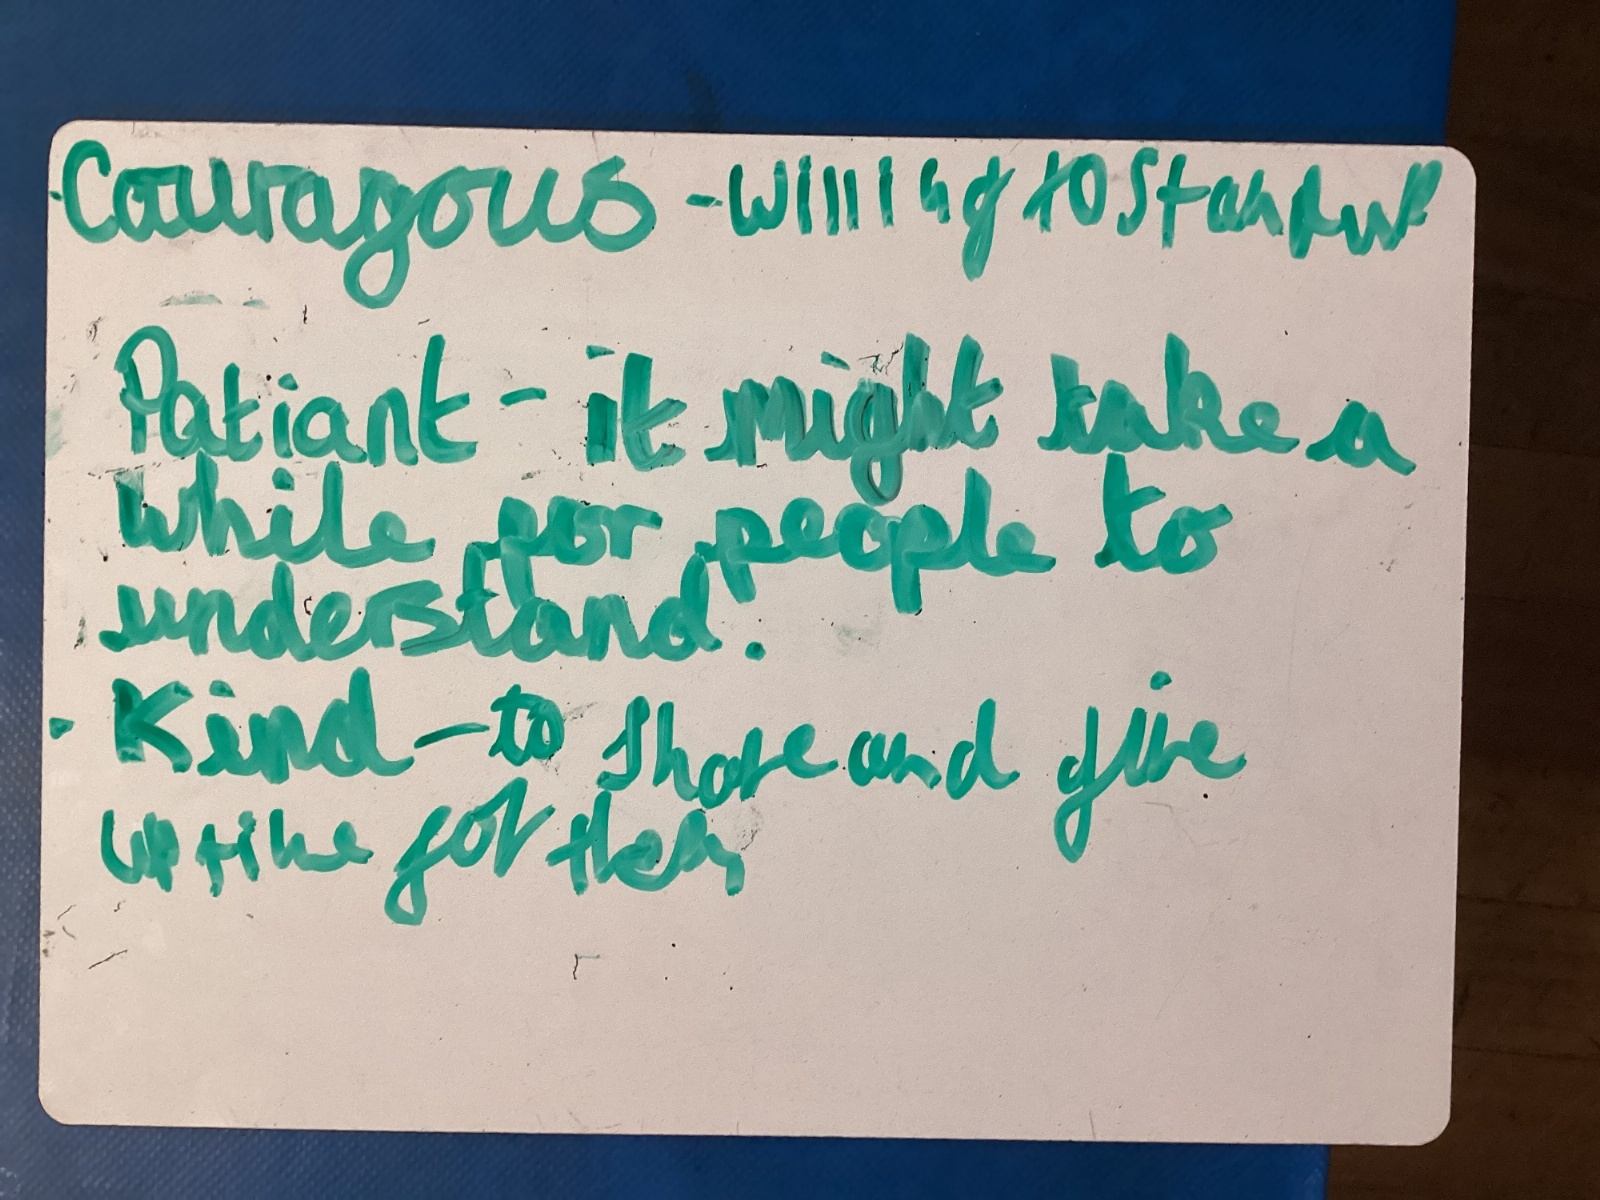 ·Couragous - willing to Stand up
Patiant - it might take a
while for people to
understand.
· Kind - to share and give
up time for them